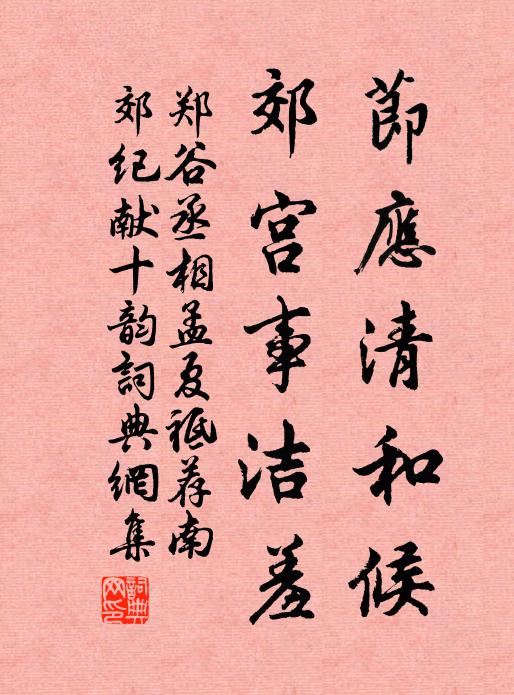 節應清和候
郊宫事洁羞
郑谷丞相孟夏祗荐南
郊纪献十韵詞典網集